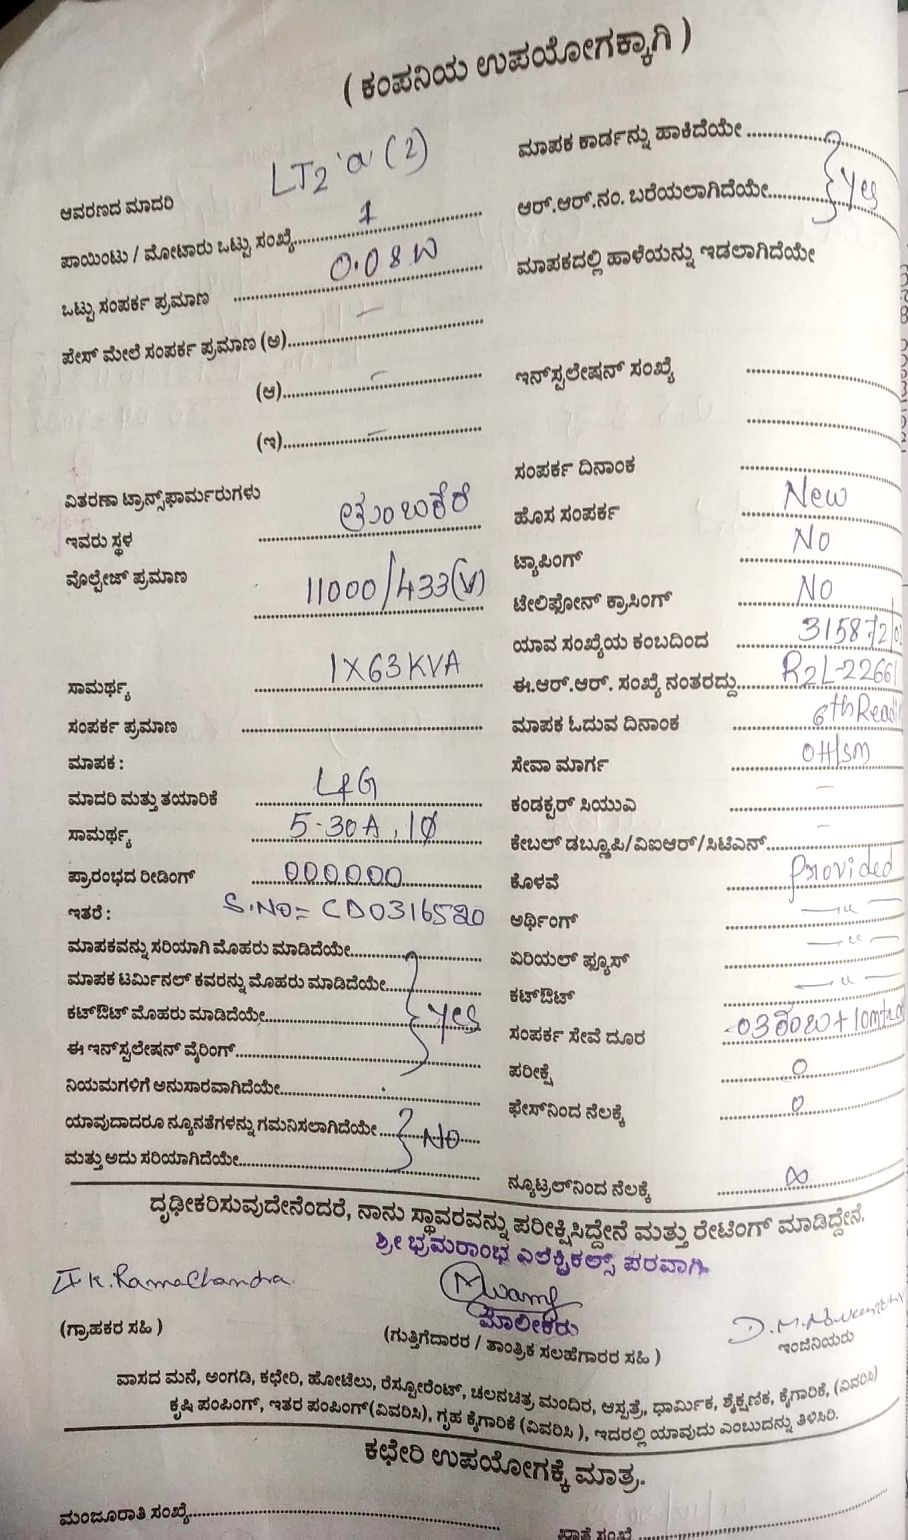 ( ಕಂಪನಿಯ ಉಪಯೋಗಕ್ಕಾಗಿ )
ಆವರಣದ ಮಾದರಿ LT2 'a' (2)
ಪಾಯಿಂಟು / ಮೋಟಾರು ಒಟ್ಟು ಸಂಖ್ಯೆ 1
ಒಟ್ಟು ಸಂಪರ್ಕ ಪ್ರಮಾಣ 0.08 W
ಪೇಸ್ ಮೇಲೆ ಸಂಪರ್ಕ ಪ್ರಮಾಣ (ಅ) –
(ಆ) –
(ಇ) –
ವಿತರಣಾ ಟ್ರಾನ್ಸ್‌ಫಾರ್ಮರುಗಳು
ಇವರು ಸ್ಥಳ
ವೊಲ್ಟೇಜ್ ಪ್ರಮಾಣ 11000/433(V)
ಸಾಮರ್ಥ್ಯ 1X63KVA
ಸಂಪರ್ಕ ಪ್ರಮಾಣ
ಮಾಪಕ :
ಮಾದರಿ ಮತ್ತು ತಯಾರಿಕೆ L&G
ಸಾಮರ್ಥ್ಯ 5-30A, 1Ø
ಪ್ರಾರಂಭದ ರೀಡಿಂಗ್ 000000
ಇತರೆ : S.NO= CD0316520
ಮಾಪಕವನ್ನು ಸರಿಯಾಗಿ ಮೊಹರು ಮಾಡಿದೆಯೇ
ಮಾಪಕ ಟರ್ಮಿನಲ್ ಕವರನ್ನು ಮೊಹರು ಮಾಡಿದೆಯೇ
ಕಟ್‌ಔಟ್ ಮೊಹರು ಮಾಡಿದೆಯೇ Yes
ಈ ಇನ್‌ಸ್ಟಲೇಷನ್ ವೈರಿಂಗ್
ನಿಯಮಗಳಿಗೆ ಅನುಸಾರವಾಗಿದೆಯೇ
ಯಾವುದಾದರೂ ನ್ಯೂನತೆಗಳನ್ನು ಗಮನಿಸಲಾಗಿದೆಯೇ NO
ಮತ್ತು ಅದು ಸರಿಯಾಗಿದೆಯೇ
ಮಾಪಕ ಕಾರ್ಡನ್ನು ಹಾಕಿದೆಯೇ
ಆರ್.ಆರ್.ನಂ. ಬರೆಯಲಾಗಿದೆಯೇ Yes
ಮಾಪಕದಲ್ಲಿ ಹಾಳೆಯನ್ನು ಇಡಲಾಗಿದೆಯೇ
ಇನ್‌ಸ್ಟಲೇಷನ್ ಸಂಖ್ಯೆ
ಸಂಪರ್ಕ ದಿನಾಂಕ
ಹೊಸ ಸಂಪರ್ಕ New
ಟ್ಯಾಪಿಂಗ್ NO
ಟೆಲಿಫೋನ್ ಕ್ರಾಸಿಂಗ್ NO
ಯಾವ ಸಂಖ್ಯೆಯ ಕಂಬದಿಂದ 315872
ಈ.ಆರ್.ಆರ್. ಸಂಖ್ಯೆ ನಂತರದ್ದು R2L-22661
ಮಾಪಕ ಓದುವ ದಿನಾಂಕ 6th
ಸೇವಾ ಮಾರ್ಗ OH/SM
ಕಂಡಕ್ಟರ್ ಸಿಯುವಿ –
ಕೇಬಲ್ ಡಬ್ಲ್ಯೂಪಿ/ವಿಐಆರ್/ಸಿಟಿಎನ್ –
ಕೊಳವೆ Provided
ಅರ್ಥಿಂಗ್ —"—
ಏರಿಯಲ್ ಫ್ಯೂಸ್ —"—
ಕಟ್‌ಔಟ್ —"—
ಸಂಪರ್ಕ ಸೇವೆ ದೂರ
ಪರೀಕ್ಷೆ 0
ಫೇಸ್‌ನಿಂದ ನೆಲಕ್ಕೆ 0
ನ್ಯೂಟ್ರಲ್‌ನಿಂದ ನೆಲಕ್ಕೆ ∞
ದೃಢೀಕರಿಸುವುದೇನೆಂದರೆ, ನಾನು ಸ್ಥಾವರವನ್ನು ಪರೀಕ್ಷಿಸಿದ್ದೇನೆ ಮತ್ತು ರೇಟಿಂಗ್ ಮಾಡಿದ್ದೇನೆ.
ಶ್ರೀ ಭ್ರಮರಾಂಭ ಎಲೆಕ್ಟ್ರಿಕಲ್ಸ್ ಪರವಾಗಿ
K. RamaChandra
ಮಾಲೀಕರು
(ಗ್ರಾಹಕರ ಸಹಿ )
(ಗುತ್ತಿಗೆದಾರರ / ತಾಂತ್ರಿಕ ಸಲಹೆಗಾರರ ಸಹಿ )
ಇಂಜಿನಿಯರು
ವಾಸದ ಮನೆ, ಅಂಗಡಿ, ಕಛೇರಿ, ಹೋಟೆಲು, ರೆಸ್ಟೋರೆಂಟ್, ಚಲನಚಿತ್ರ ಮಂದಿರ, ಆಸ್ಪತ್ರೆ, ಧಾರ್ಮಿಕ, ಶೈಕ್ಷಣಿಕ, ಕೈಗಾರಿಕೆ, (ವಿವರಿಸಿ)
ಕೃಷಿ ಪಂಪಿಂಗ್, ಇತರ ಪಂಪಿಂಗ್(ವಿವರಿಸಿ), ಗೃಹ ಕೈಗಾರಿಕೆ (ವಿವರಿಸಿ ), ಇದರಲ್ಲಿ ಯಾವುದು ಎಂಬುದನ್ನು ತಿಳಿಸಿರಿ.
ಕಛೇರಿ ಉಪಯೋಗಕ್ಕೆ ಮಾತ್ರ.
ಮಂಜೂರಾತಿ ಸಂಖ್ಯೆ
ಖಾತೆ ಸಂಖ್ಯೆ